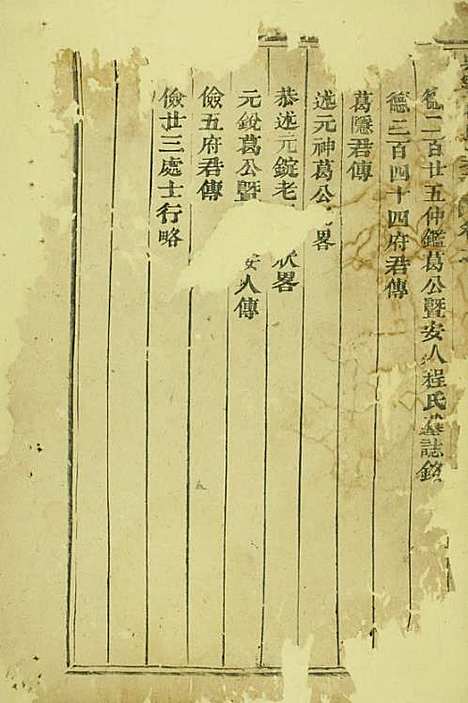 德二百廿五仲鑑葛公暨安人程氏墓誌銘
德二百四十四府君傳
葛隱君傳
述元神葛公畧
恭述元錠老狀畧
元銳葛公暨安人傳
儉五府君傳
儉廿三處士行略